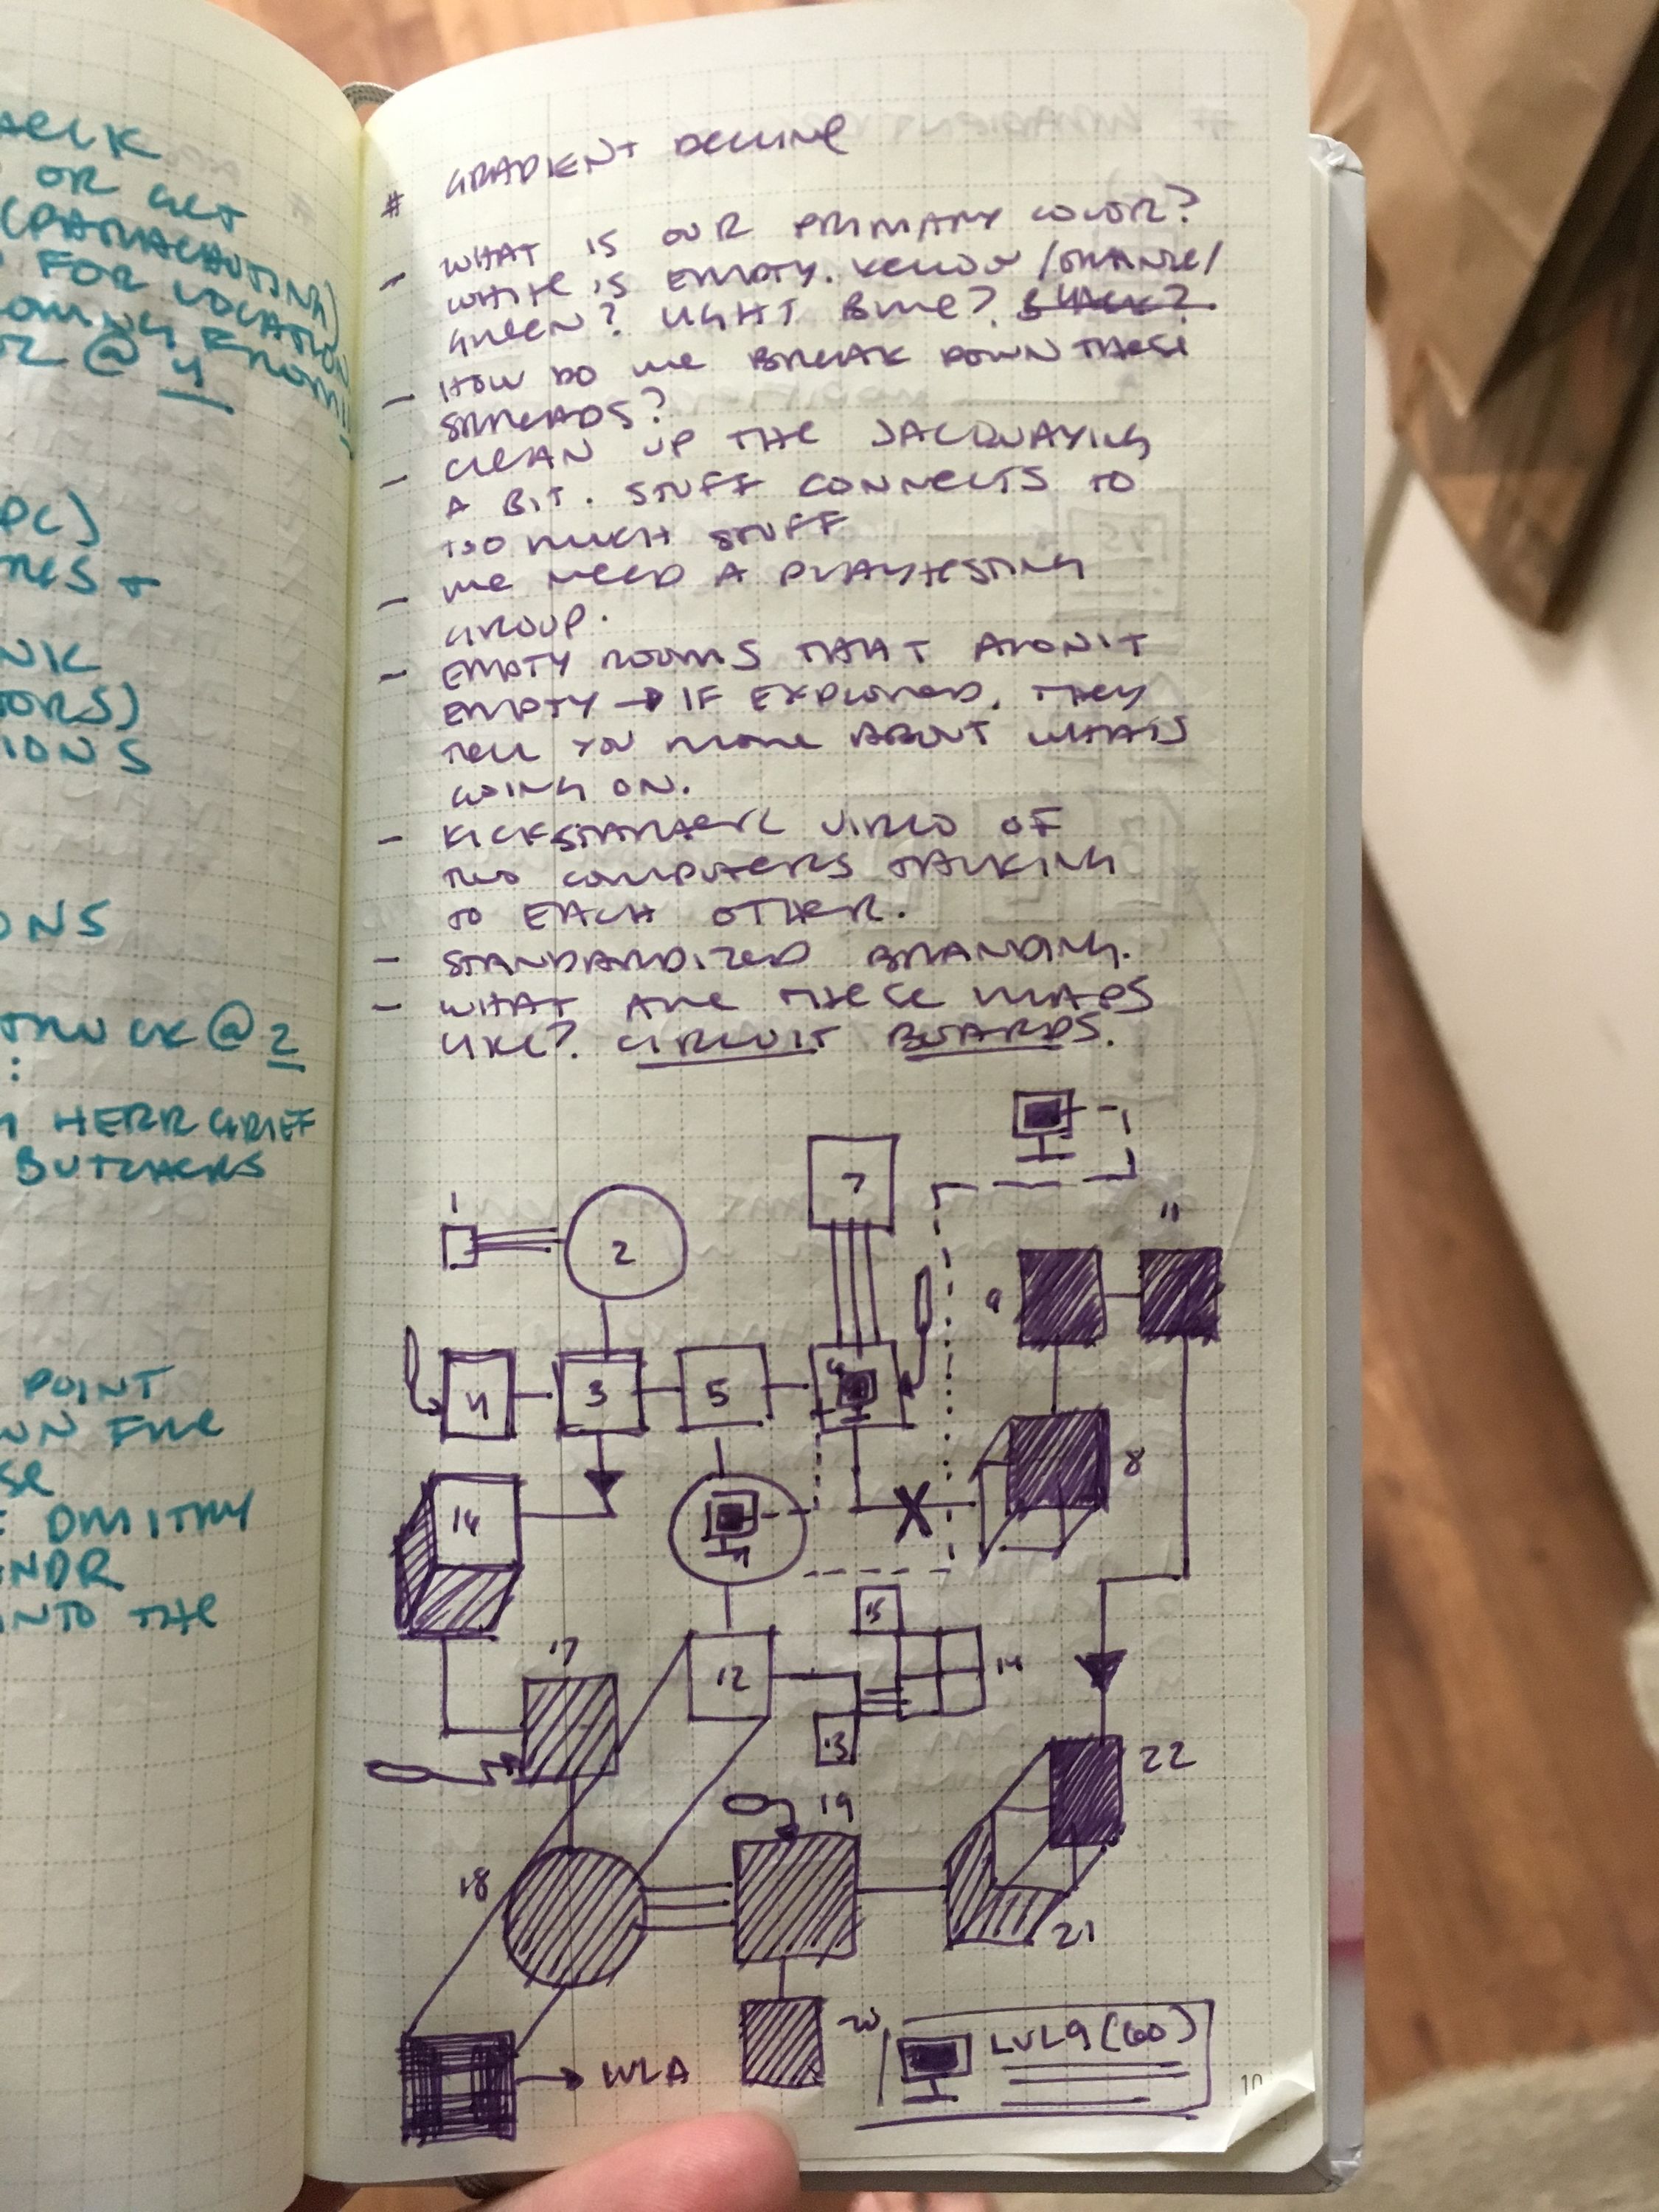 AELK
OR GET
FOR LOCATION
OMING FROM
@ 4
PC)
NIK
TORS)
IONS
ONS
TRUCK @ 2
:
HERR GRIEF
BUTCHERS
POINT
WN FILE
SE
: DMITRY
NDR
INTO THE
# GRADIENT DECLINE
- WHAT IS OUR PRIMARY COLOR?
WHITE IS EMPTY. YELLOW/ORANGE/
GREEN? LIGHT BLUE? BLACK?
- HOW DO WE BREAK DOWN THESE
SPREADS?
- CLEAN UP THE JACQUAYING
A BIT. STUFF CONNECTS TO
TOO MUCH STUFF
- WE NEED A PLAYTESTING
GROUP.
- EMPTY ROOMS THAT AREN'T
EMPTY → IF EXPLORED, THEY
TELL YOU MORE ABOUT WHAT'S
GOING ON.
- KICKSTARTER VIDEO OF
TWO COMPUTERS TALKING
TO EACH OTHER.
- STANDARDIZED BRANDING.
- WHAT ARE THESE MAPS
LIKE? CIRCUIT BOARDS.
7
1
2
11
9
4
3
5
8
16
15
17
12
14
13
22
19
18
21
20
LVL9 (60)
→ WLA
10